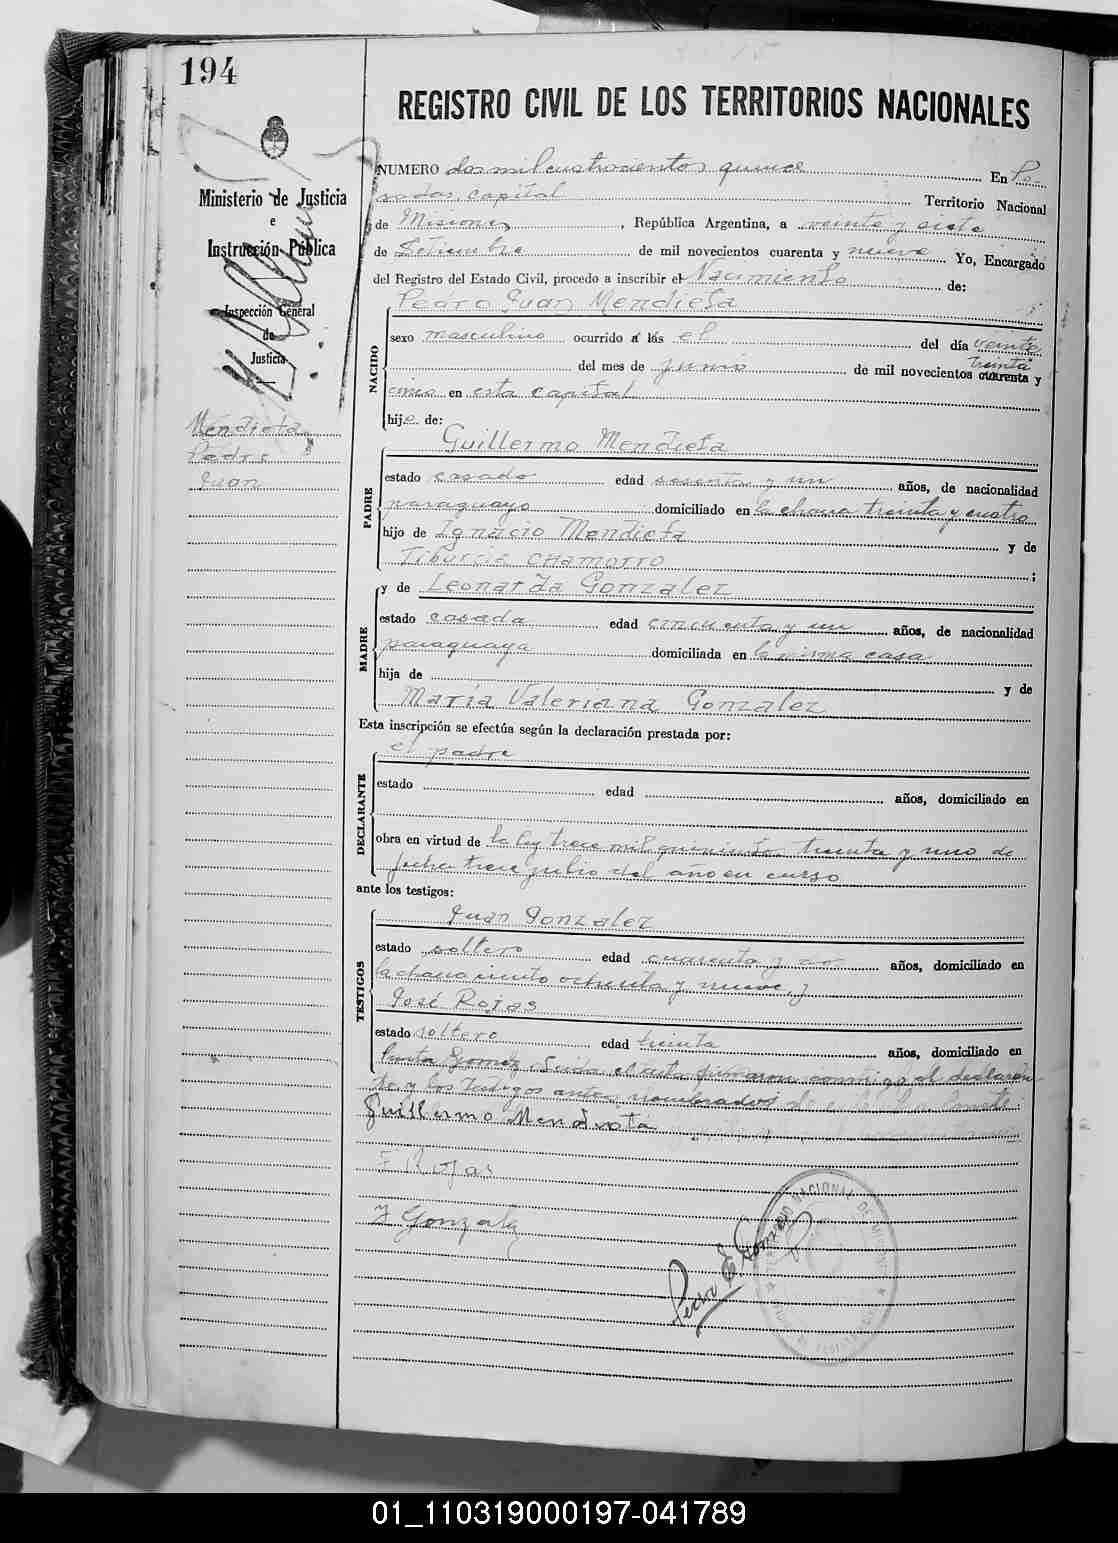 194
REGISTRO CIVIL DE LOS TERRITORIOS NACIONALES
Ministerio de Justicia
e
Instrucción Pública
Inspección General
de
Justicia
Mendieta
Pedro
Juan
NUMERO dos mil cuatrocientos quince En Po
sadas, capital Territorio Nacional
de Misiones, República Argentina, a veinte y siete
de Setiembre de mil novecientos cuarenta y nueve Yo, Encargado
del Registro del Estado Civil, procedo a inscribir el Nacimiento de:
Pedro Juan Mendieta
NACIDO
sexo masculino ocurrido á las el del día veinte
del mes de junio de mil novecientos cuarenta y
treinta
cinco en esta capital
hijo de:
Guillermo Mendieta
PADRE
estado casado edad sesenta y un años, de nacionalidad
paraguayo domiciliado en la chacra treinta y cuatro
hijo de Ignacio Mendieta y de
Tiburcia Chamorro ;
y de Leonarda Gonzalez
MADRE
estado casada edad cincuenta y un años, de nacionalidad
paraguaya domiciliada en la misma casa
hija de y de
María Valeriana Gonzalez
Esta inscripción se efectúa según la declaración prestada por:
el padre
DECLARANTE
estado edad años, domiciliado en
obra en virtud de la ley trece mil quinientos treinta y uno de
fecha trece julio del año en curso
ante los testigos:
Juan Gonzalez
TESTIGOS
estado soltero edad cuarenta y años, domiciliado en
la chacra ciento ochenta y nueve, y
José Rojas
estado soltero edad treinta años, domiciliado en
Leida el acta firmaron conmigo el declaran
te y los testigos antes nombrados
Guillermo Mendieta
Rojas
J Gonzalez
Pedro E Gomez
01_110319000197-041789